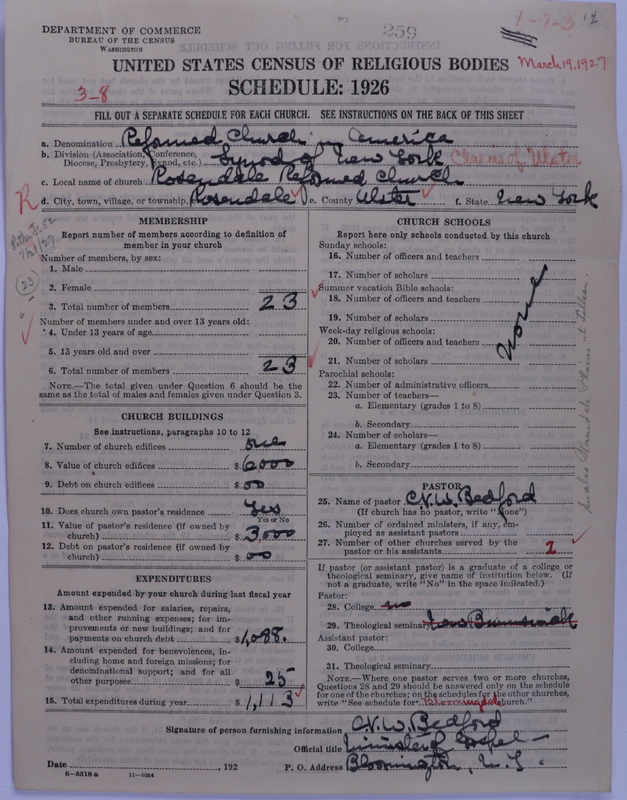 259
1-7-3 12
DEPARTMENT OF COMMERCE
BUREAU OF THE CENSUS
WASHINGTON
UNITED STATES CENSUS OF RELIGIOUS BODIES
March 19, 1927
SCHEDULE: 1926
3-8
FILL OUT A SEPARATE SCHEDULE FOR EACH CHURCH. SEE INSTRUCTIONS ON THE BACK OF THIS SHEET
a. Denomination Reformed Church in America
b. Division (Association, Conference, Diocese, Presbytery, Synod, etc.) Synod of New York Classis of Ulster
c. Local name of church Rosendale Reformed Church
d. City, town, village, or township, Rosendale e. County Ulster f. State New York
R
7/21/27
23
MEMBERSHIP
Report number of members according to definition of
member in your church
Number of members, by sex:
1. Male
2. Female
3. Total number of members 23
Number of members under and over 13 years old:
4. Under 13 years of age
5. 13 years old and over
6. Total number of members 23
NOTE.—The total given under Question 6 should be the
same as the total of males and females given under Question 3.
CHURCH BUILDINGS
See instructions, paragraphs 10 to 12
7. Number of church edifices one
8. Value of church edifices $6000
9. Debt on church edifices $00
10. Does church own pastor's residence Yes
Yes or No
11. Value of pastor's residence (if owned by
church) $3,000
12. Debt on pastor's residence (if owned by
church) $00
EXPENDITURES
Amount expended by your church during last fiscal year
13. Amount expended for salaries, repairs,
and other running expenses; for im-
provements or new buildings; and for
payments on church debt $1,088.
14. Amount expended for benevolences, in-
cluding home and foreign missions; for
denominational support; and for all
other purposes $25
15. Total expenditures during year $1,113
CHURCH SCHOOLS
Report here only schools conducted by this church
Sunday schools:
16. Number of officers and teachers
17. Number of scholars
Summer vacation Bible schools:
18. Number of officers and teachers
19. Number of scholars
Week-day religious schools:
20. Number of officers and teachers
21. Number of scholars
None
Parochial schools:
22. Number of administrative officers
23. Number of teachers—
a. Elementary (grades 1 to 8)
b. Secondary
24. Number of scholars—
a. Elementary (grades 1 to 8)
b. Secondary
PASTOR
25. Name of pastor C. V. W. Bedford
(If church has no pastor, write "None")
26. Number of ordained ministers, if any, em-
ployed as assistant pastors
27. Number of other churches served by the
pastor or his assistants 2
If pastor (or assistant pastor) is a graduate of a college or
theological seminary, give name of institution below. (If
not a graduate, write "No" in the space indicated.)
Pastor:
28. College no
29. Theological seminary New Brunswick
Assistant pastor:
30. College
31. Theological seminary
NOTE.—Where one pastor serves two or more churches,
Questions 28 and 29 should be answered only on the schedule
for one of the churches; on the schedules for the other churches,
write "See schedule for Bloomingdale church."
Signature of person furnishing information C. V. W. Bedford
Official title Minister of Gospel
Date , 192 P. O. Address Bloomington, N. Y.
8-5318 a 11-9064